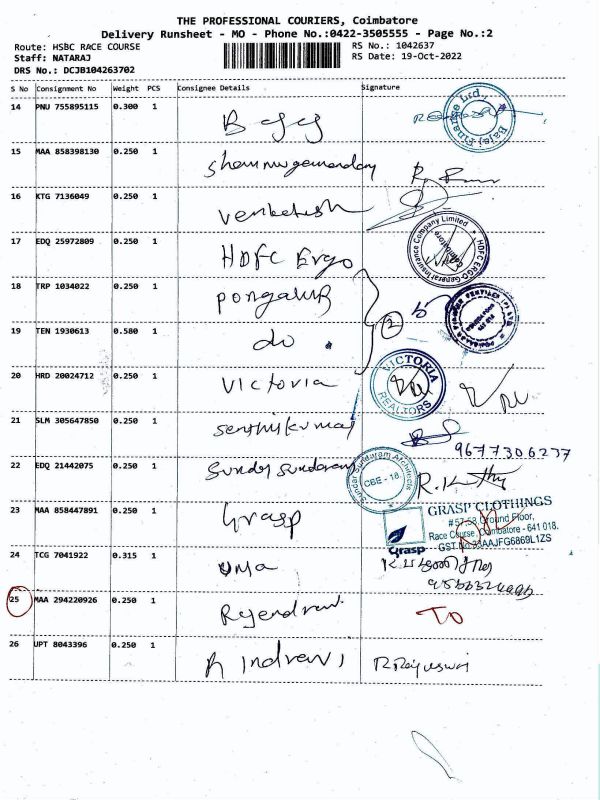 THE PROFESSIONAL COURIERS, Coimbatore
Delivery Runsheet - MO - Phone No.:0422-3505555 - Page No.:2
Route: HSBC RACE COURSE
Staff: NATARAJ
DRS No.: DCJB104263702
RS No.: 1042637
RS Date: 19-Oct-2022
S No Consignment No Weight PCS Consignee Details Signature
14 PNU 755895115 0.300 1
Bajaj Finance Ltd.
15 MAA 858398130 0.250 1
16 KTG 7136049 0.250 1 Venketesh
17 EDQ 25972809 0.250 1 HDFC Ergo
HDFC ERGO General Insurance Company Limited
18 TRP 1034022 0.250 1
2
19 TEN 1930613 0.580 1 do
20 HRD 20024712 0.250 1 Victoria
VICTORIA REALTORS
21 SLM 305647850 0.250 1 Senthilkumar
9677306237
22 EDQ 21442075 0.250 1 Sunder Sunderam
Sunder Sundaram Architects
CBE - 18
23 MAA 858447891 0.250 1 Grasp
Grasp
GRASP CLOTHINGS
# 57-58, Ground Floor,
Race Course, Coimbatore - 641 018.
GST No.33AAJFG6869L1ZS
24 TCG 7041922 0.315 1 Uma
25 MAA 294220926 0.250 1 Rajendran
TO
26 UPT 8043396 0.250 1 R Indrani